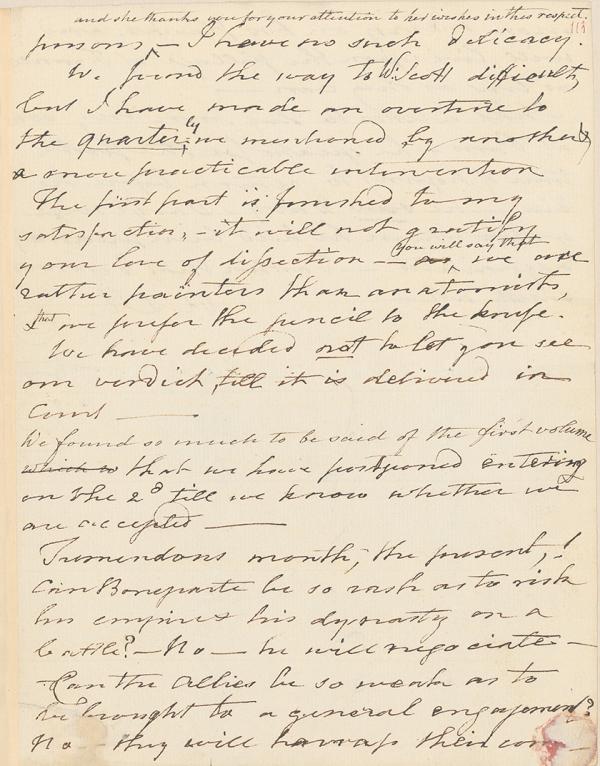 and she thanks you for your attention to her wishes in this respect.
113
persons — I have no such delicacy.
We found the way to W. Scott difficult,
but I have made an overture to
the quarterly we mentioned by another &
a more practicable intervention
The first part is finished to my
satisfaction, – it will not gratify
you will say that
your love of dissection — as we are
rather painters than anatomists,
that
& we prefer the pencil to the knife.
We have decided not to let you see
our verdict till it is delivered in
Court —
We found so much to be said of the first volume
which is that we have postponed entering
on the 2d till we know whether we
are accepted —
Tremendous month, the present,!
Can Boneparte be so rash as to risk
his empire & his dynasty on a
battle? — No — he will negociate —
Can the Allies be so weak as to
be brought to a general engagement?
No — they will harrass their